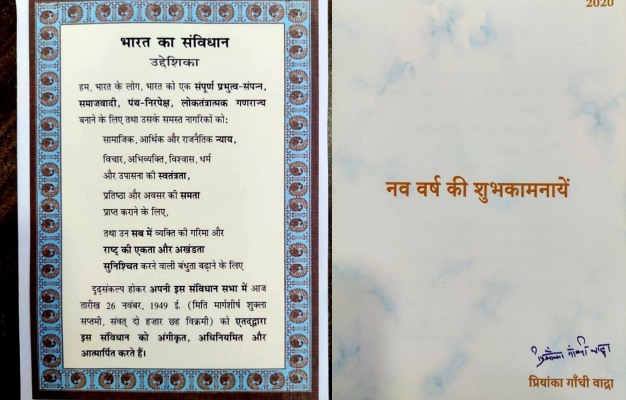 भारत का संविधान
उद्देशिका
हम, भारत के लोग, भारत को एक संपूर्ण प्रभुत्व-संपन्न,
समाजवादी, पंथ-निरपेक्ष, लोकतंत्रात्मक गणराज्य
बनाने के लिए तथा उसके समस्त नागरिकों को:
सामाजिक, आर्थिक और राजनैतिक न्याय,
विचार, अभिव्यक्ति, विश्वास, धर्म
और उपासना की स्वतंत्रता,
प्रतिष्ठा और अवसर की समता
प्राप्त कराने के लिए,
तथा उन सब में व्यक्ति की गरिमा और
राष्ट्र की एकता और अखंडता
सुनिश्चित करने वाली बंधुता बढ़ाने के लिए
दृढ़संकल्प होकर अपनी इस संविधान सभा में आज
तारीख 26 नवंबर, 1949 ई. (मिति मार्गशीर्ष शुक्ला
सप्तमी, संवत् दो हजार छह विक्रमी) को एतद्द्वारा
इस संविधान को अंगीकृत, अधिनियमित और
आत्मार्पित करते हैं।
2020
नव वर्ष की शुभकामनायें
प्रियंका गाँधी वाद्रा
प्रियांका गाँधी वाद्रा